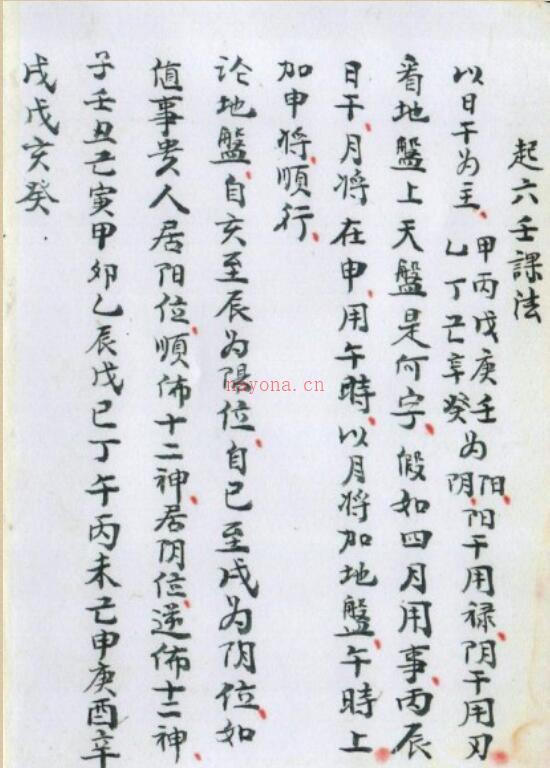 起六壬課法
以日干为主甲丙戊庚壬乙丁己辛癸为阳阴阳干用禄阴干用刃
看地盤上天盤是何字假如四月用事丙辰
日干月将在申用午時以月将加地盤午時上
加申将順行
论地盤自亥至辰为陽位自巳至戌为阴位如
值事贵人居阳位順佈十二神居阴位逆佈十二神
子壬丑己寅甲卯乙辰戊巳丁午丙未己申庚酉辛
戌戊亥癸
nayona.cn